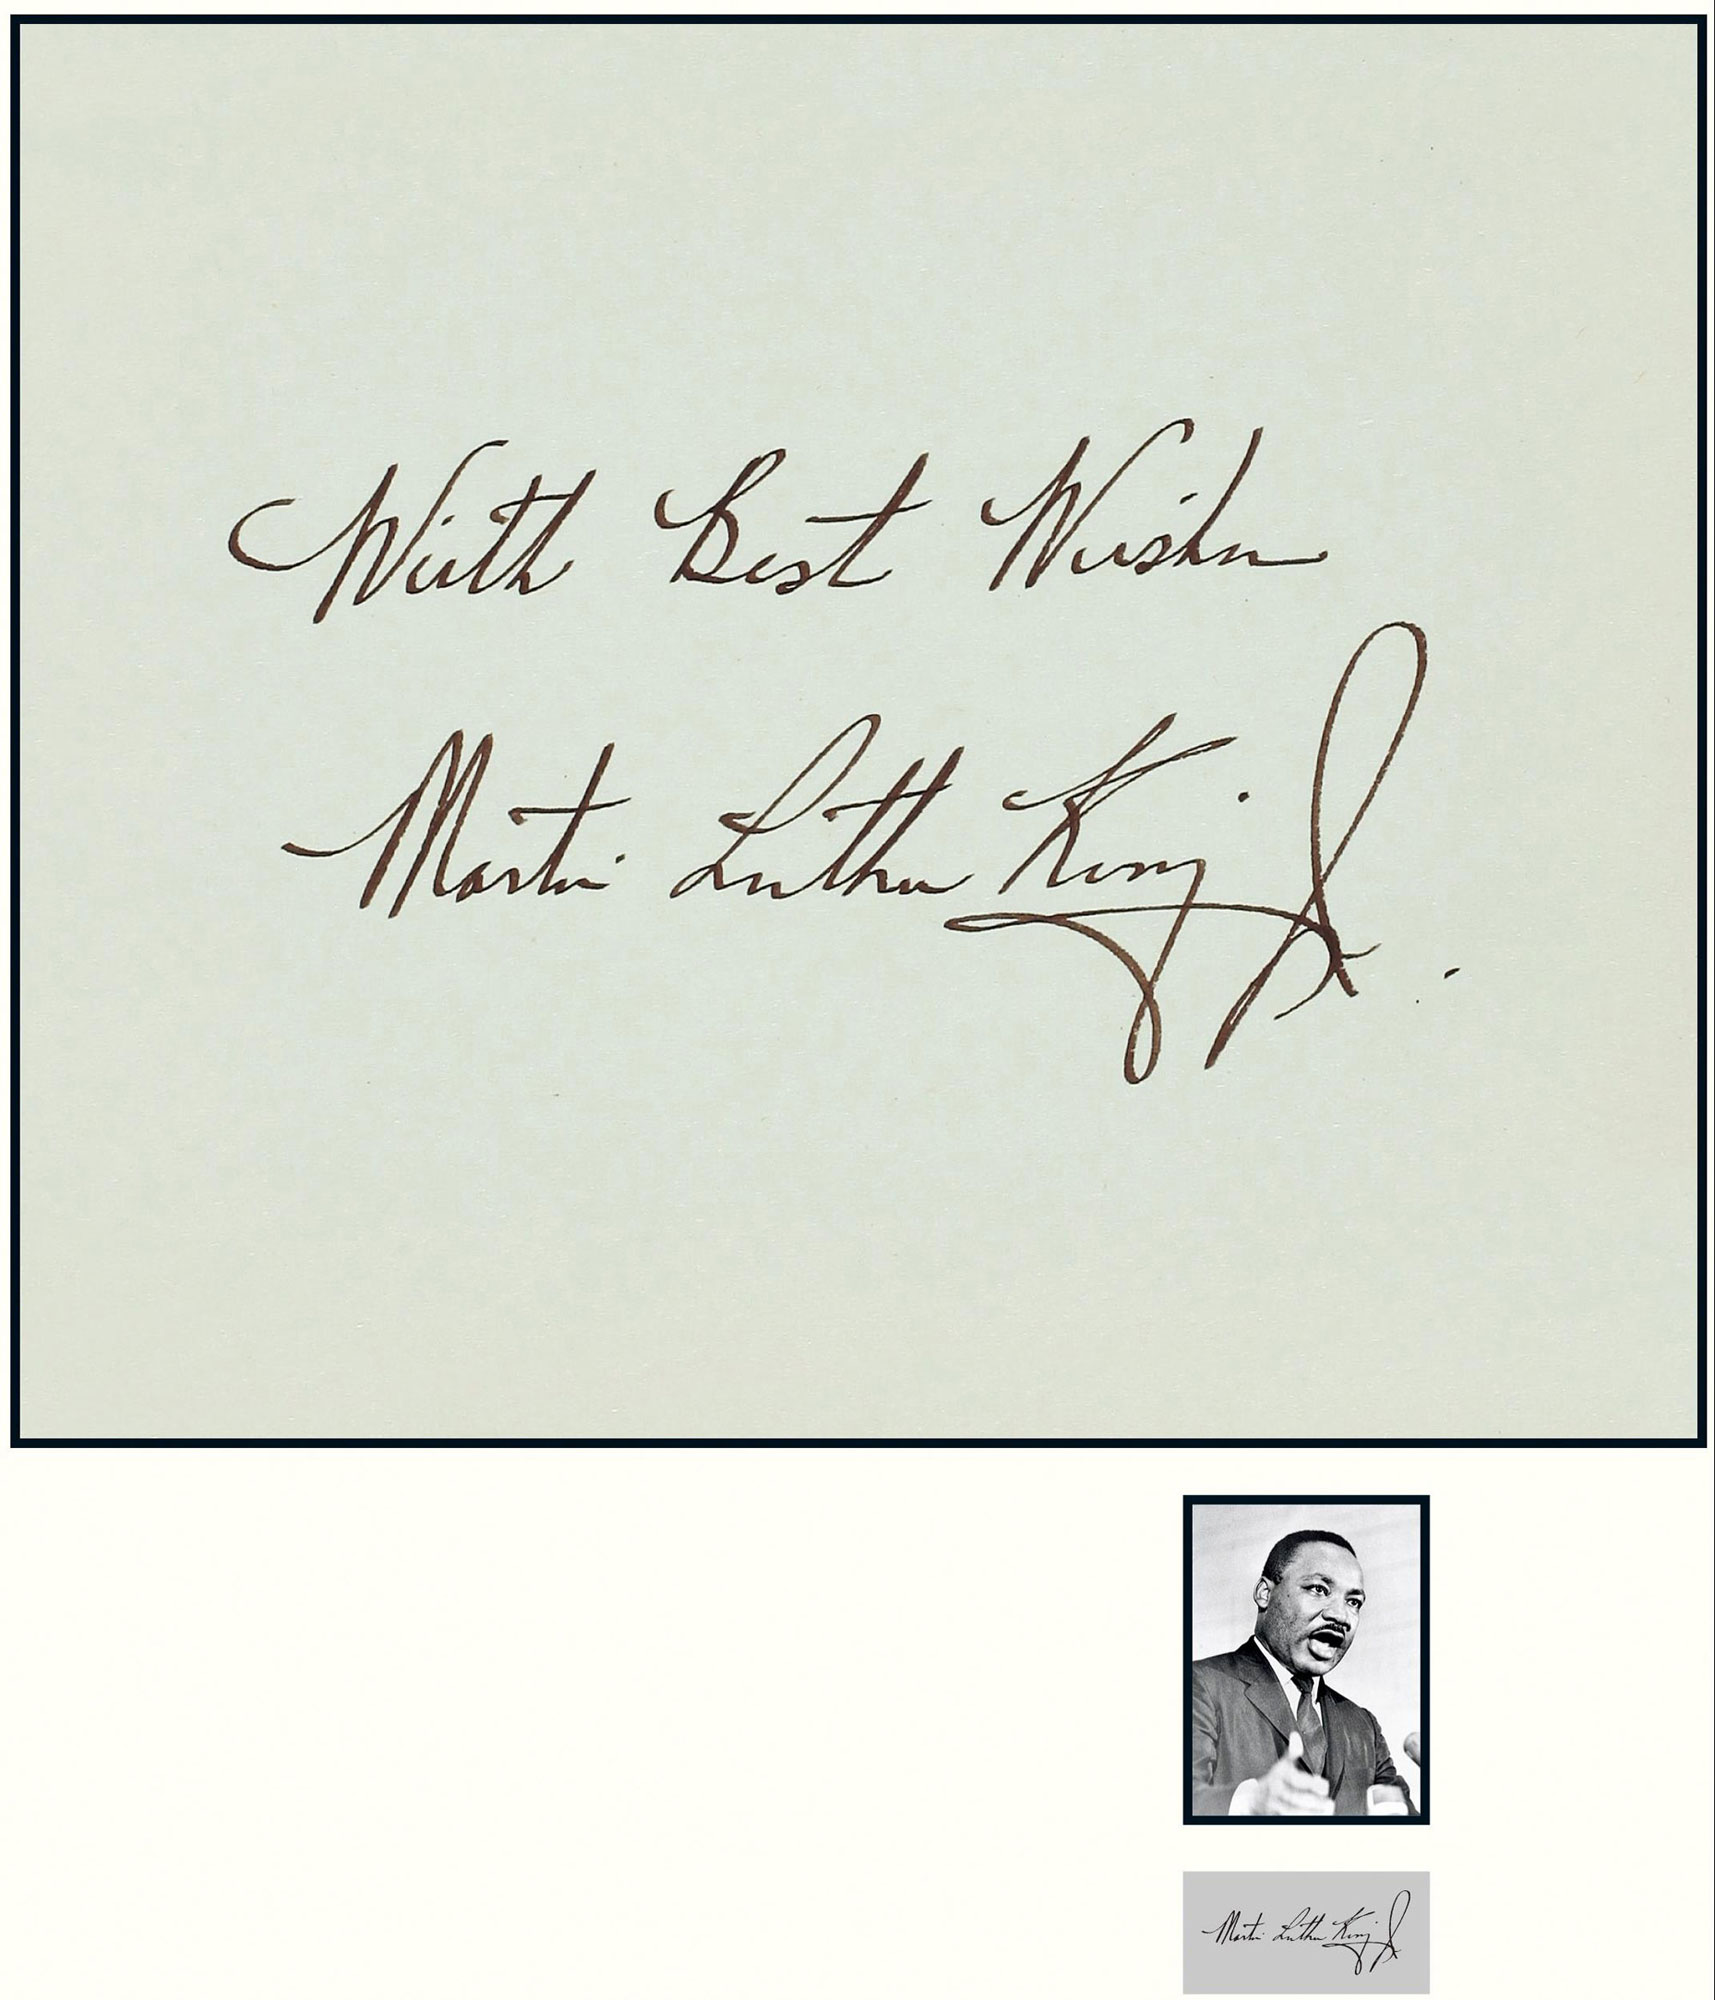 With Best Wishes
Martin Luther King Jr.
Martin Luther King Jr